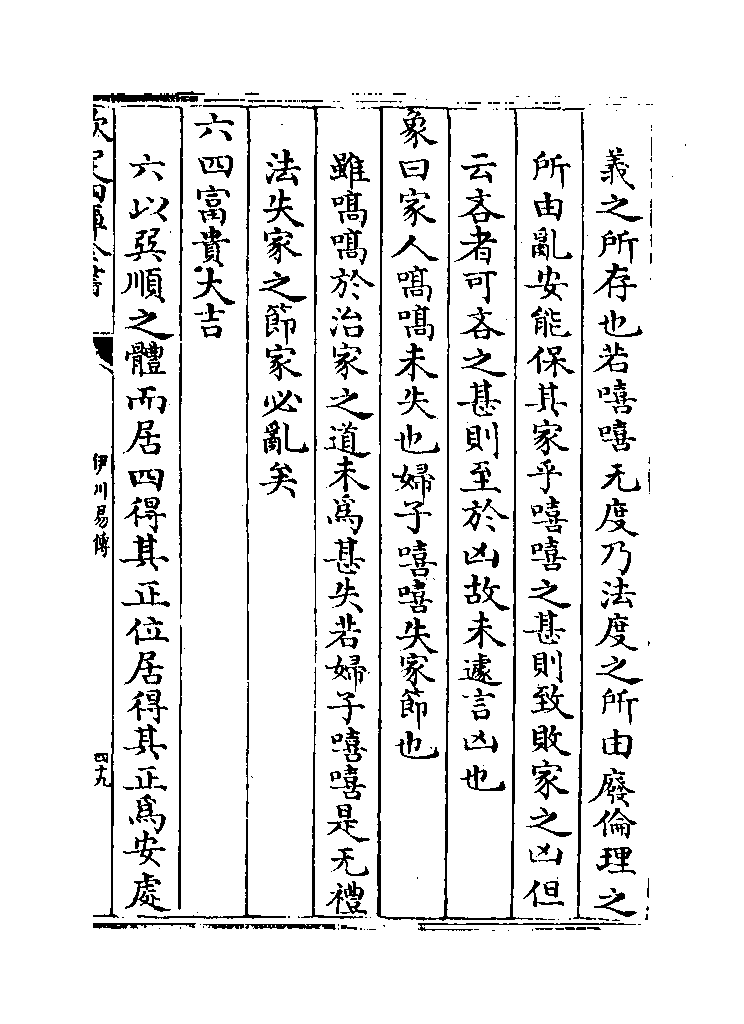 義之所存也若嘻嘻无度乃法度之所由廢倫理之
所由亂安能保其家乎嘻嘻之甚則致敗家之凶但
云吝者可吝之甚則至於凶故未遽言凶也
象曰家人嗃嗃未失也婦子嘻嘻失家節也
雖嗃嗃於治家之道未為甚失若婦子嘻嘻是无禮
法失家之節家必亂矣
六四富貴大吉
六以巽順之體而居四得其正位居得其正為安處
欽定四庫全書
伊川易傳
四十九